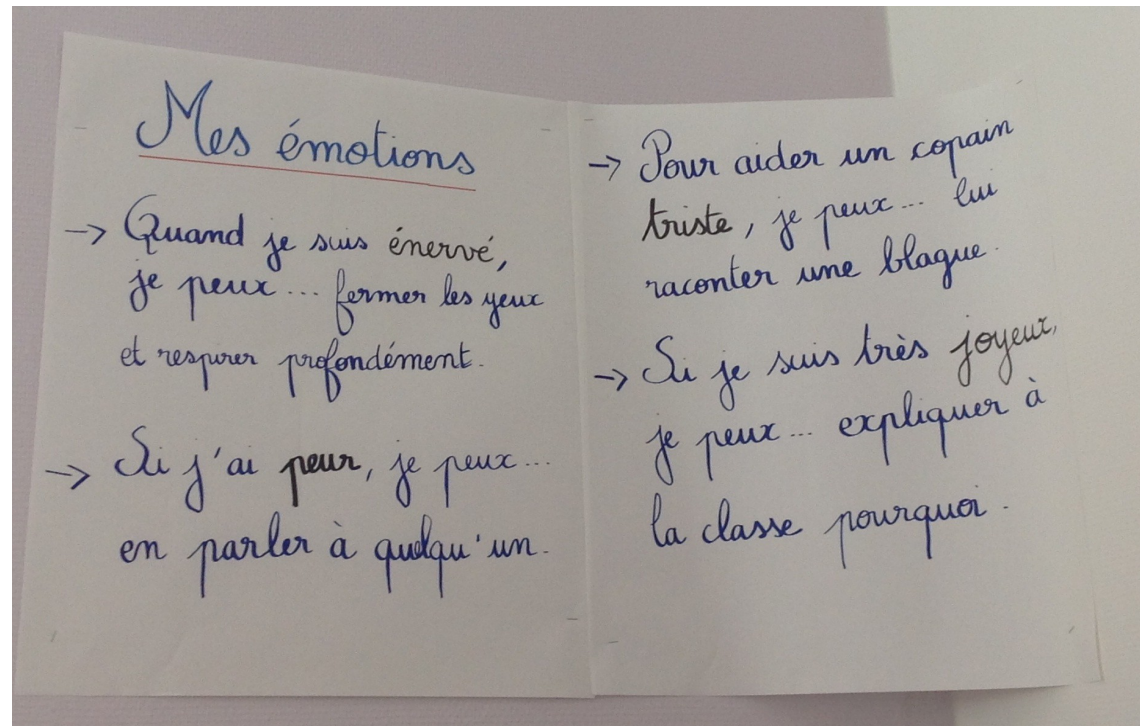 Mes émotions
-> Quand je suis énervé,
je peux... fermer les yeux
et respirer profondément.
-> Si j'ai peur, je peux...
en parler à quelqu'un.
-> Pour aider un copain
triste, je peux... lui
raconter une blague.
-> Si je suis très joyeux,
je peux... expliquer à
la classe pourquoi.